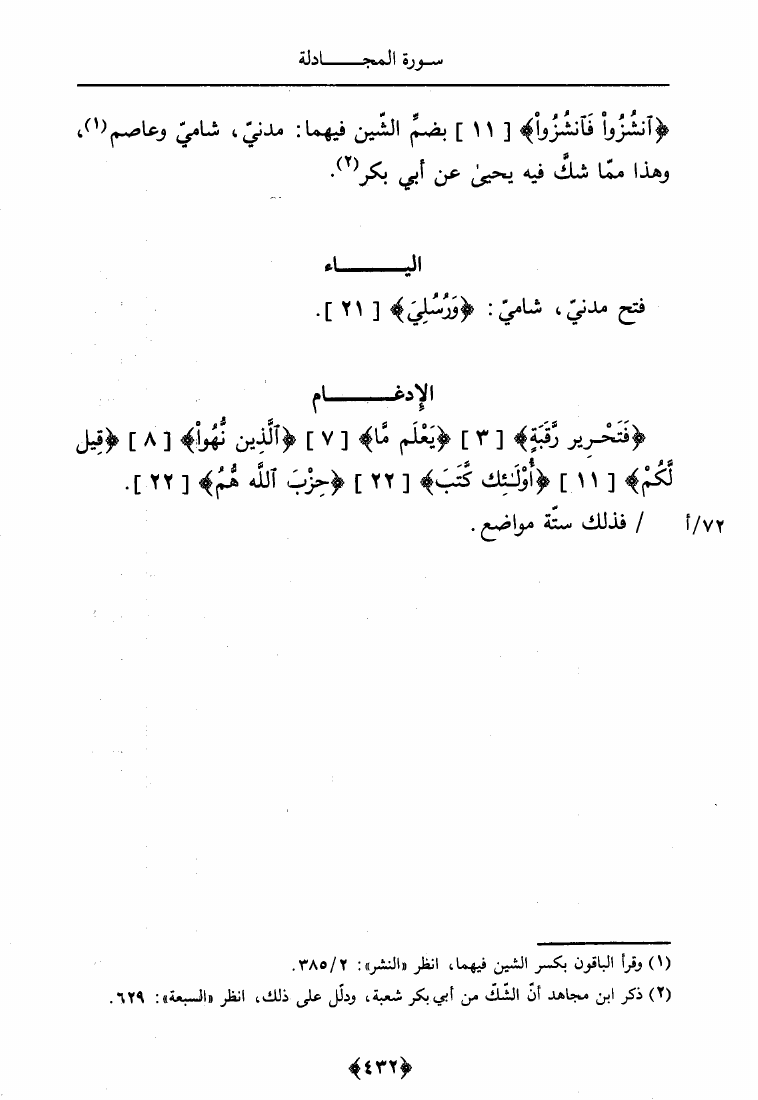 سورة المجادلة
﴿ٱنشُزُواْ فَٱنشُزُواْ﴾ [ ١١ ] بضمِّ الشّين فيهما: مدنيّ، شاميّ وعاصم(١)،
وهذا ممّا شكَّ فيه يحيىٰ عن أبي بكر(٢).
اليـــاء
فتح مدنيّ، شاميّ: ﴿وَرُسُلِيَ﴾ [ ٢١ ].
الإدغـــام
﴿فَتَحْرِير رَّقَبَةٍ﴾ [ ٣ ] ﴿يَعْلَم مَّا﴾ [ ٧ ] ﴿ٱلَّذِين نُّهُواْ﴾ [ ٨ ] ﴿قِيل
لَّكُمْ﴾ [ ١١ ] ﴿أُوْلَـٰٓئِك كَّتَبَ﴾ [ ٢٢ ] ﴿حِزْبَ ٱللَّه هُّمُ﴾ [ ٢٢ ].
٧٢/أ / فذلك ستّة مواضع.
(١) وقرأ الباقون بكسر الشين فيهما، انظر «النشر»: ٣٨٥/٢.
(٢) ذكر ابن مجاهد أنّ الشّكّ من أبي بكر شعبة، ودلّل على ذلك، انظر «السبعة»: ٦٢٩.
﴿٤٣٢﴾